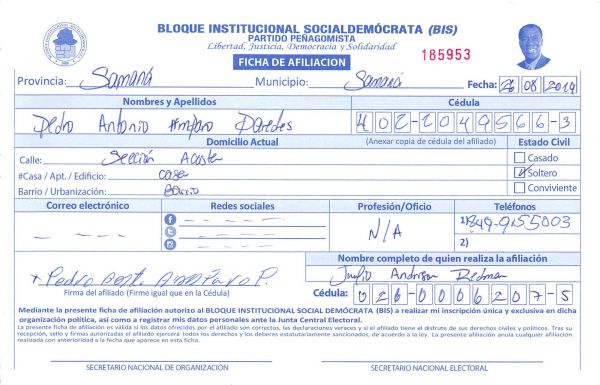 BLOQUE INSTITUCIONAL SOCIALDEMÓCRATA (BIS)
PARTIDO PEÑAGOMISTA
Libertad, Justicia, Democracia y Solidaridad
FICHA DE AFILIACION
185953
Provincia: Samaná Municipio: Samaná Fecha: 26 08 2019
Nombres y Apellidos Cédula
Pedro Antonio Amparo Paredes 402-2049566-3
Domicilio Actual (Anexar copia de cédula del afiliado) Estado Civil
Calle: Sección Acosta Casado
#Casa / Apt. / Edificio: casa Soltero
Barrio / Urbanización: Barrio Conviviente
Correo electrónico Redes sociales Profesión/Oficio Teléfonos
N/A 1) 849-9155003
2)
Nombre completo de quien realiza la afiliación
Pedro Amparo P.
Firma del afiliado (Firme igual que en la Cédula) Cédula: 026-0006207-5
Mediante la presente ficha de afiliación autorizo al BLOQUE INSTITUCIONAL SOCIAL DEMÓCRATA (BIS) a realizar mi inscripción única y exclusiva en dicha
organización política, así como a registrar mis datos personales ante la Junta Central Electoral.
La presente ficha de afiliación es válida si los datos ofrecidos por el afiliado son correctos, las declaraciones veraces y si el afiliado tiene el disfrute de sus derechos civiles y políticos. Tras su
recepción, sello y firmas autorizadas el afiliado ejercerá todos los derechos y los deberes estatutariamente sancionados, de acuerdo a la ley. La presente afiliación anula cualquier afiliación
realizada con anterioridad a la fecha que aparece en esta ficha.
SECRETARIO NACIONAL DE ORGANIZACIÓN SECRETARIO NACIONAL ELECTORAL